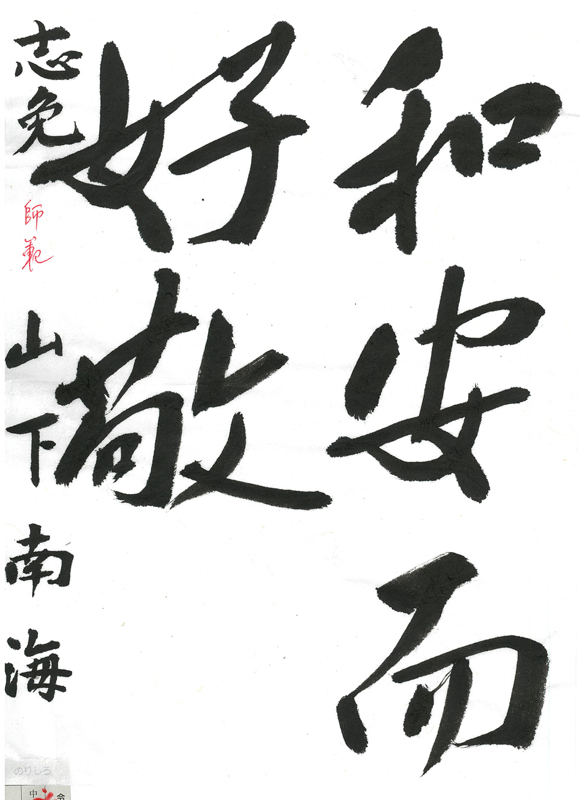 和安而
好敬
志免 師範 山下南海
のりしろ
中